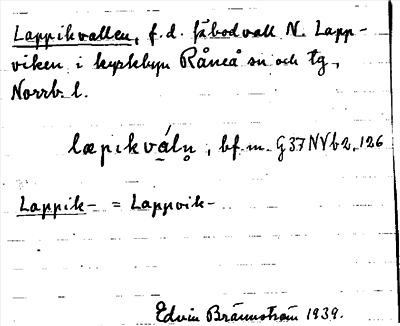 Lappikvallen, f.d. fäbodvall N. Lapp-
viken i kyrkbyn Råneå sn och tg,
Norrb. l.
læpikváln̥, bf. m. G37NVb2, 126
Lappik- = Lappvik-
Edvin Brännström 1939.